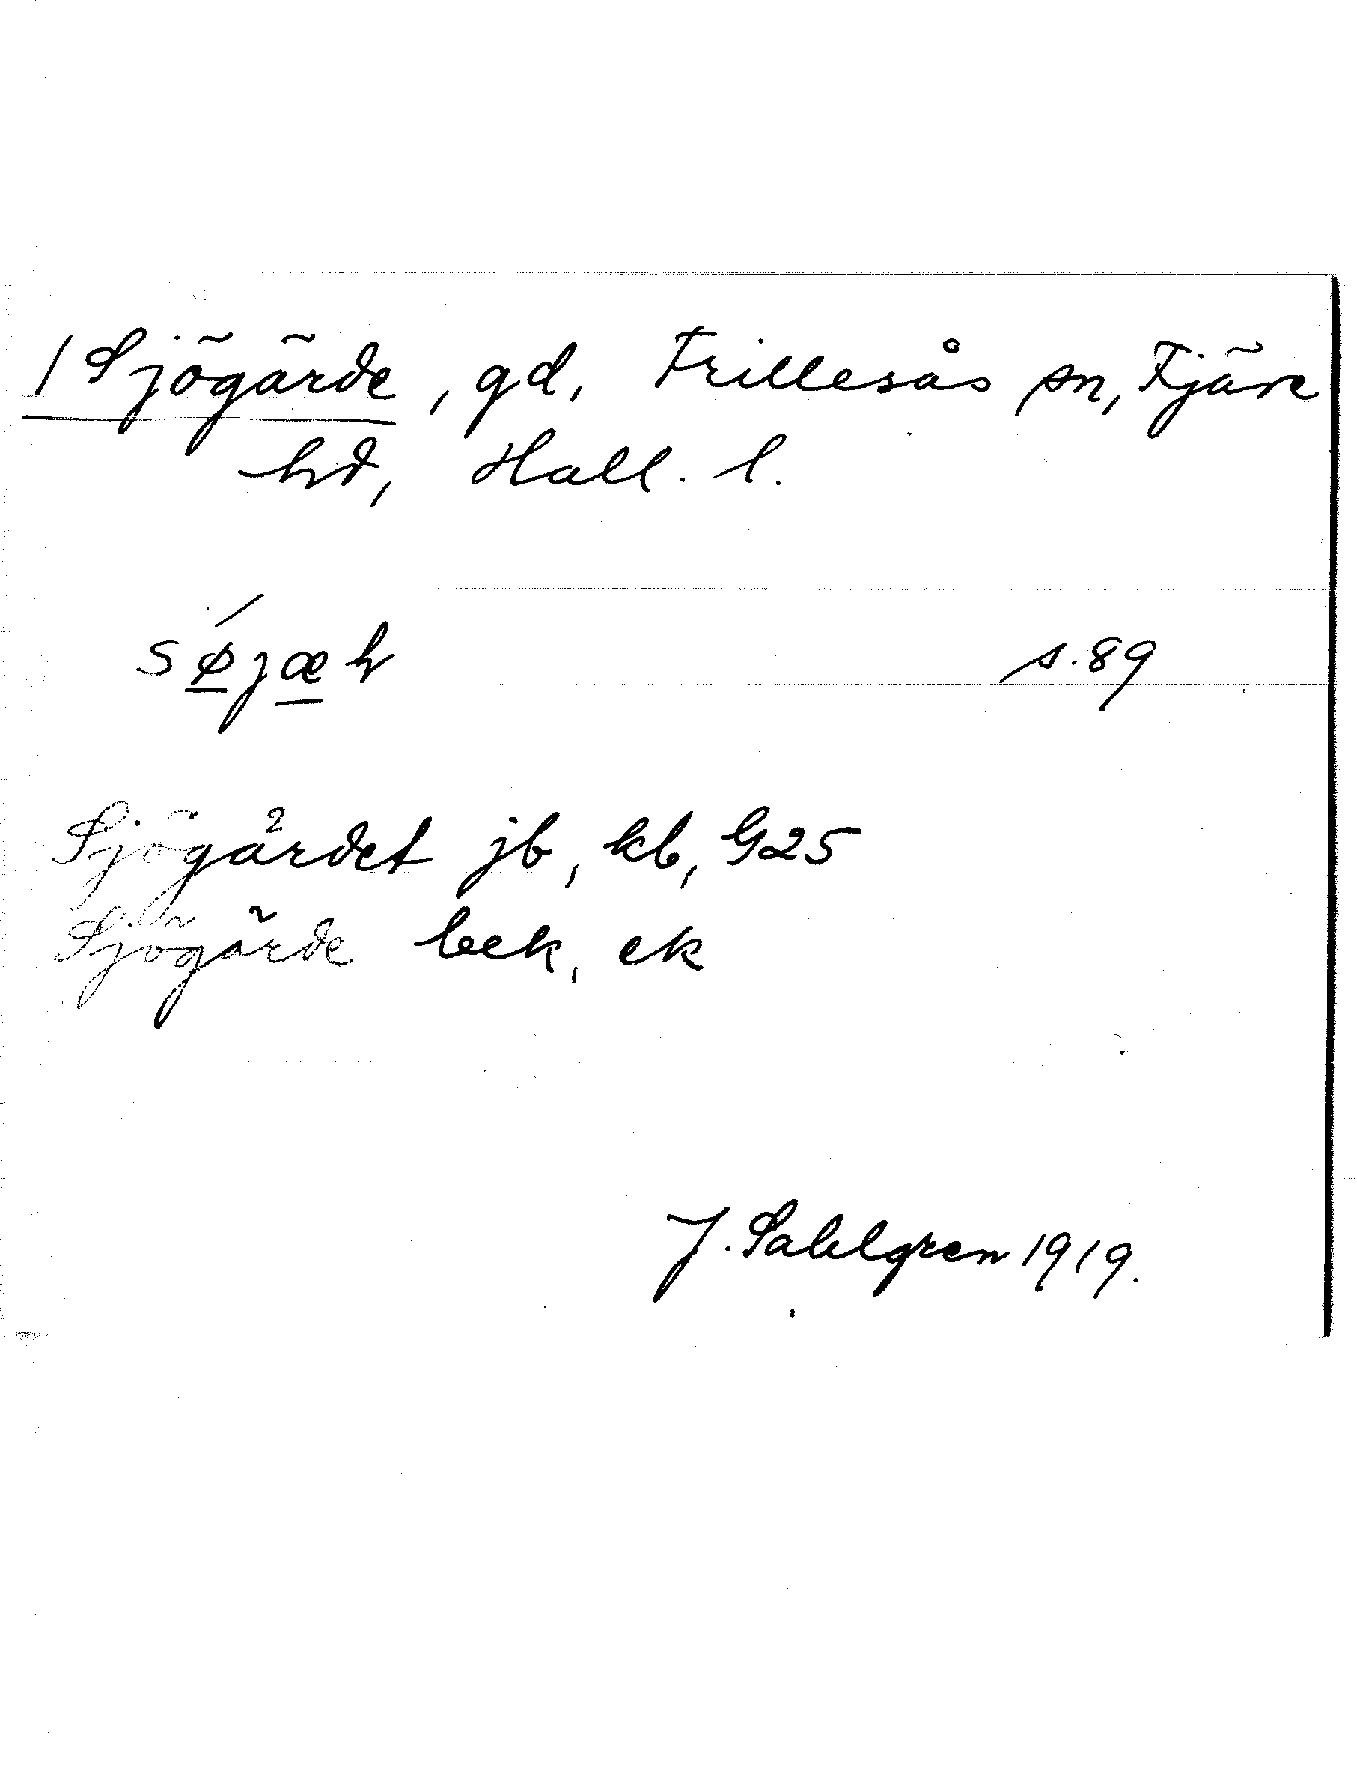 1 Sjögärde, gd, Frillesås sn, Fjäre
hd, Hall. l.
sǿ̱jæ̱r s. 89
Sjögårdet jb, kb, G25
Sjögärde bek, ek
J. Sahlgren 1919.